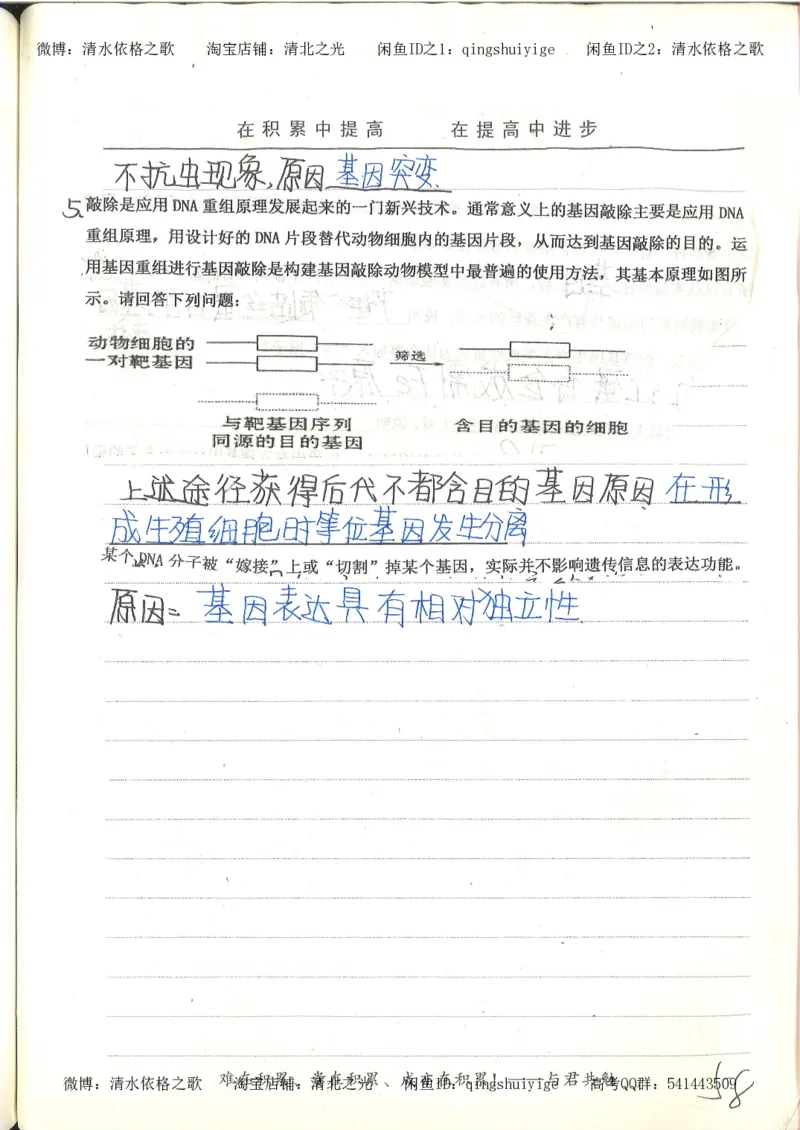 微博：清水依格之歌 淘宝店铺：清北之光 闲鱼ID之1：qingshuiyige 闲鱼ID之2：清水依格之歌
在积累中提高 在提高中进步
不抗虫现象,原因基因突变
5.敲除是应用DNA重组原理发展起来的一门新兴技术。通常意义上的基因敲除主要是应用DNA
重组原理，用设计好的DNA片段替代动物细胞内的基因片段，从而达到基因敲除的目的。运
用基因重组进行基因敲除是构建基因敲除动物模型中最普遍的使用方法，其基本原理如图所
示。请回答下列问题：
动物细胞的
一对靶基因
筛选
与靶基因序列
同源的目的基因
含目的基因的细胞
上述途径获得后代不都含目的基因原因在形
成生殖细胞时等位基因发生分离
某个DNA分子被“嫁接”上或“切割”掉某个基因，实际并不影响遗传信息的表达功能。
原因= 基因表达具有相对独立性
微博：清水依格之歌 淘宝店铺：清北之光 闲鱼ID：qingshuiyige 高考QQ群：541443509
58